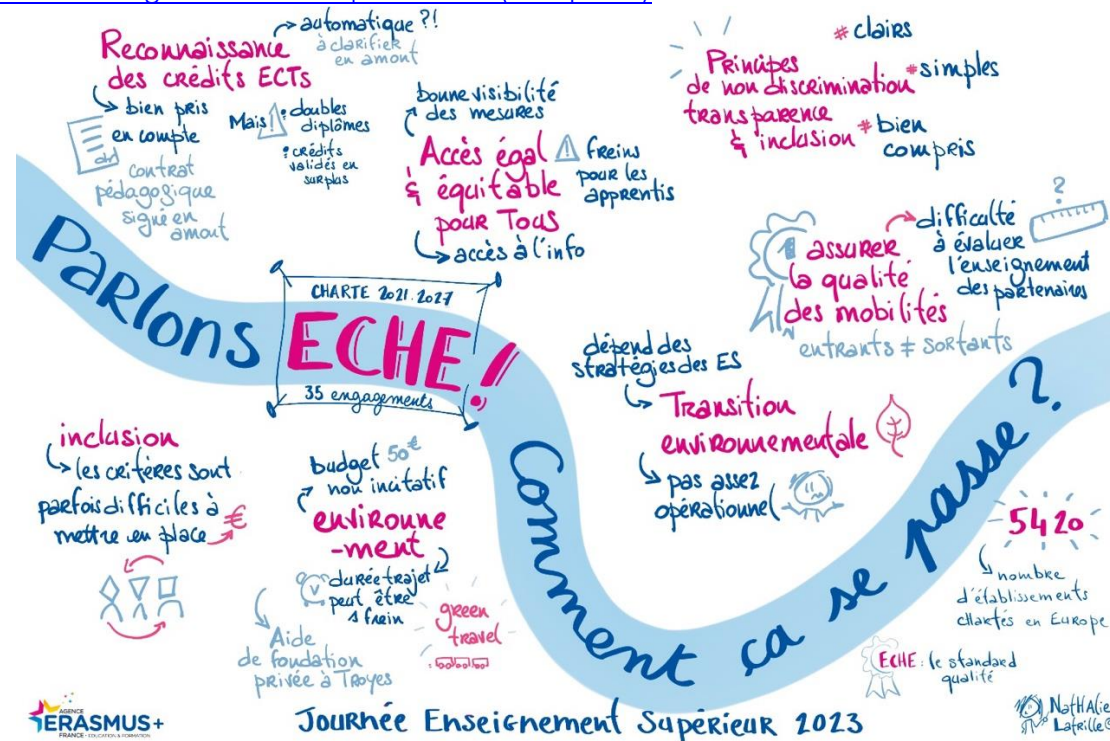 Reconnaissance
des crédits ECTs
automatique ?!
à clarifier
en amont
bien pris
en compte
contrat
pédagogique
signé en
amont
Mais
doubles
diplômes
crédits
validés en
surplus
bonne visibilité
des mesures
Accès égal
& équitable
pour Tous
accès à l'info
freins
pour les
apprentis
Principes
de non discrimination
transparence
& inclusion
# clairs
# simples
# bien
compris
1 assurer
la qualité
des mobilités
entrants ≠ sortants
difficulté
à évaluer
l'enseignement
des partenaires
?
Parlons
CHARTE 2021.2027
ECHE !
35 engagements
Comment ça se passe ?
dépend des
stratégies des ES
Transition
environnementale
pas assez
opérationnel
inclusion
les critères sont
parfois difficiles à
mettre en place
€
budget 50€
non incitatif
environne
-ment
durée trajet
peut être
1 frein
green
travel
Aide
de fondation
privée à Troyes
5420
nombre
d'établissements
chartés en Europe
ECHE : le standard
qualité
AGENCE
ERASMUS+
FRANCE - EDUCATION & FORMATION
Journée Enseignement Supérieur 2023
NatHAlie
Latrille©